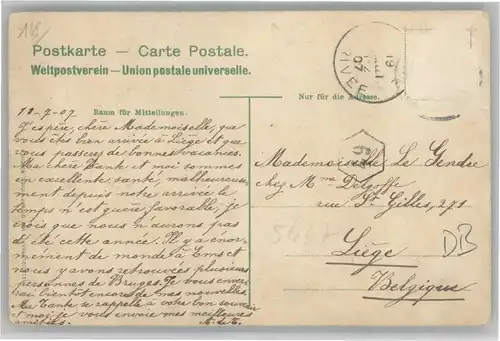 Postkarte — Carte Postale.
Weltpostverein — Union postale universelle.
Nur für die Adresse.
18-7-07 Raum für Mitteilungen:
J'espère, chère Mademoiselle, que
vous êtes bien arrivée à Liège et que
vous passez de bonnes vacances.
Ma chère Tante et moi sommes
en excellente santé malheureuse-
ment depuis notre arrivée le
temps n'est guère favorable, je
crois que nous n'aurons pas
d'été cette année. Il y a énor-
mément de monde à Ems et
nous y avons retrouvées plusieurs
personnes de Bruges. Je vous enver-
rai bientôt encore de mes nouvelles.
Ma Tante se rappelle à votre bon souvenir
et moi je vous envoie mes meilleures
amitiés.
Mademoiselle Le Gendre
chez Mme Delgeffe
rue St Gilles, 271
Liège
Belgique
5467
DB